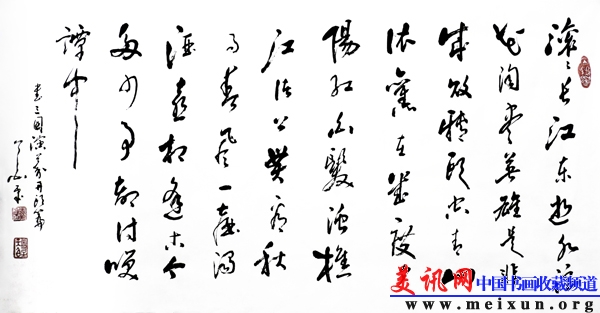 滚々長江东逝水浪
花淘尽英雄是非
成败轉頭空青山
依舊在幾度夕
陽红白髮渔樵
江渚上惯看秋
月春风一壶浊
酒喜相逢古今
多少事都付笑
譚中
书三国演义开篇
美讯网 中国书画收藏频道
www.meixun.org